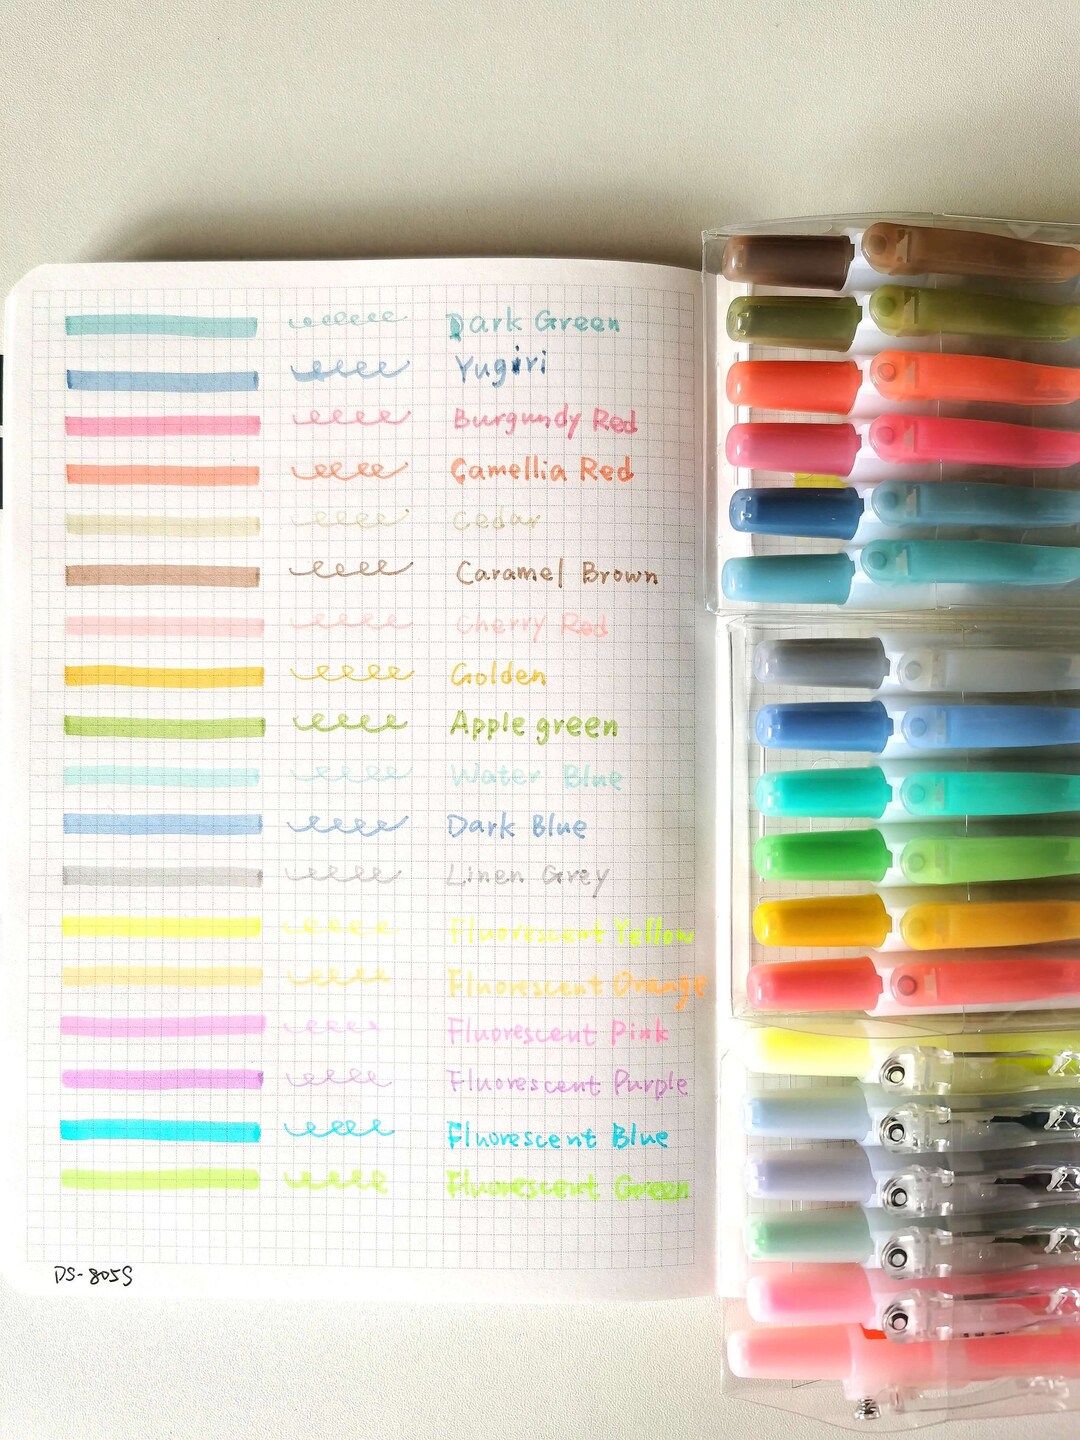 Dark Green
Yugiri
Burgundy Red
Camellia Red
Cedar
Caramel Brown
Cherry Red
Golden
Apple green
Water Blue
Dark Blue
Linen Grey
Fluorescent Yellow
Fluorescent Orange
Fluorescent Pink
Fluorescent Purple
Fluorescent Blue
Fluorescent Green
DS-805S